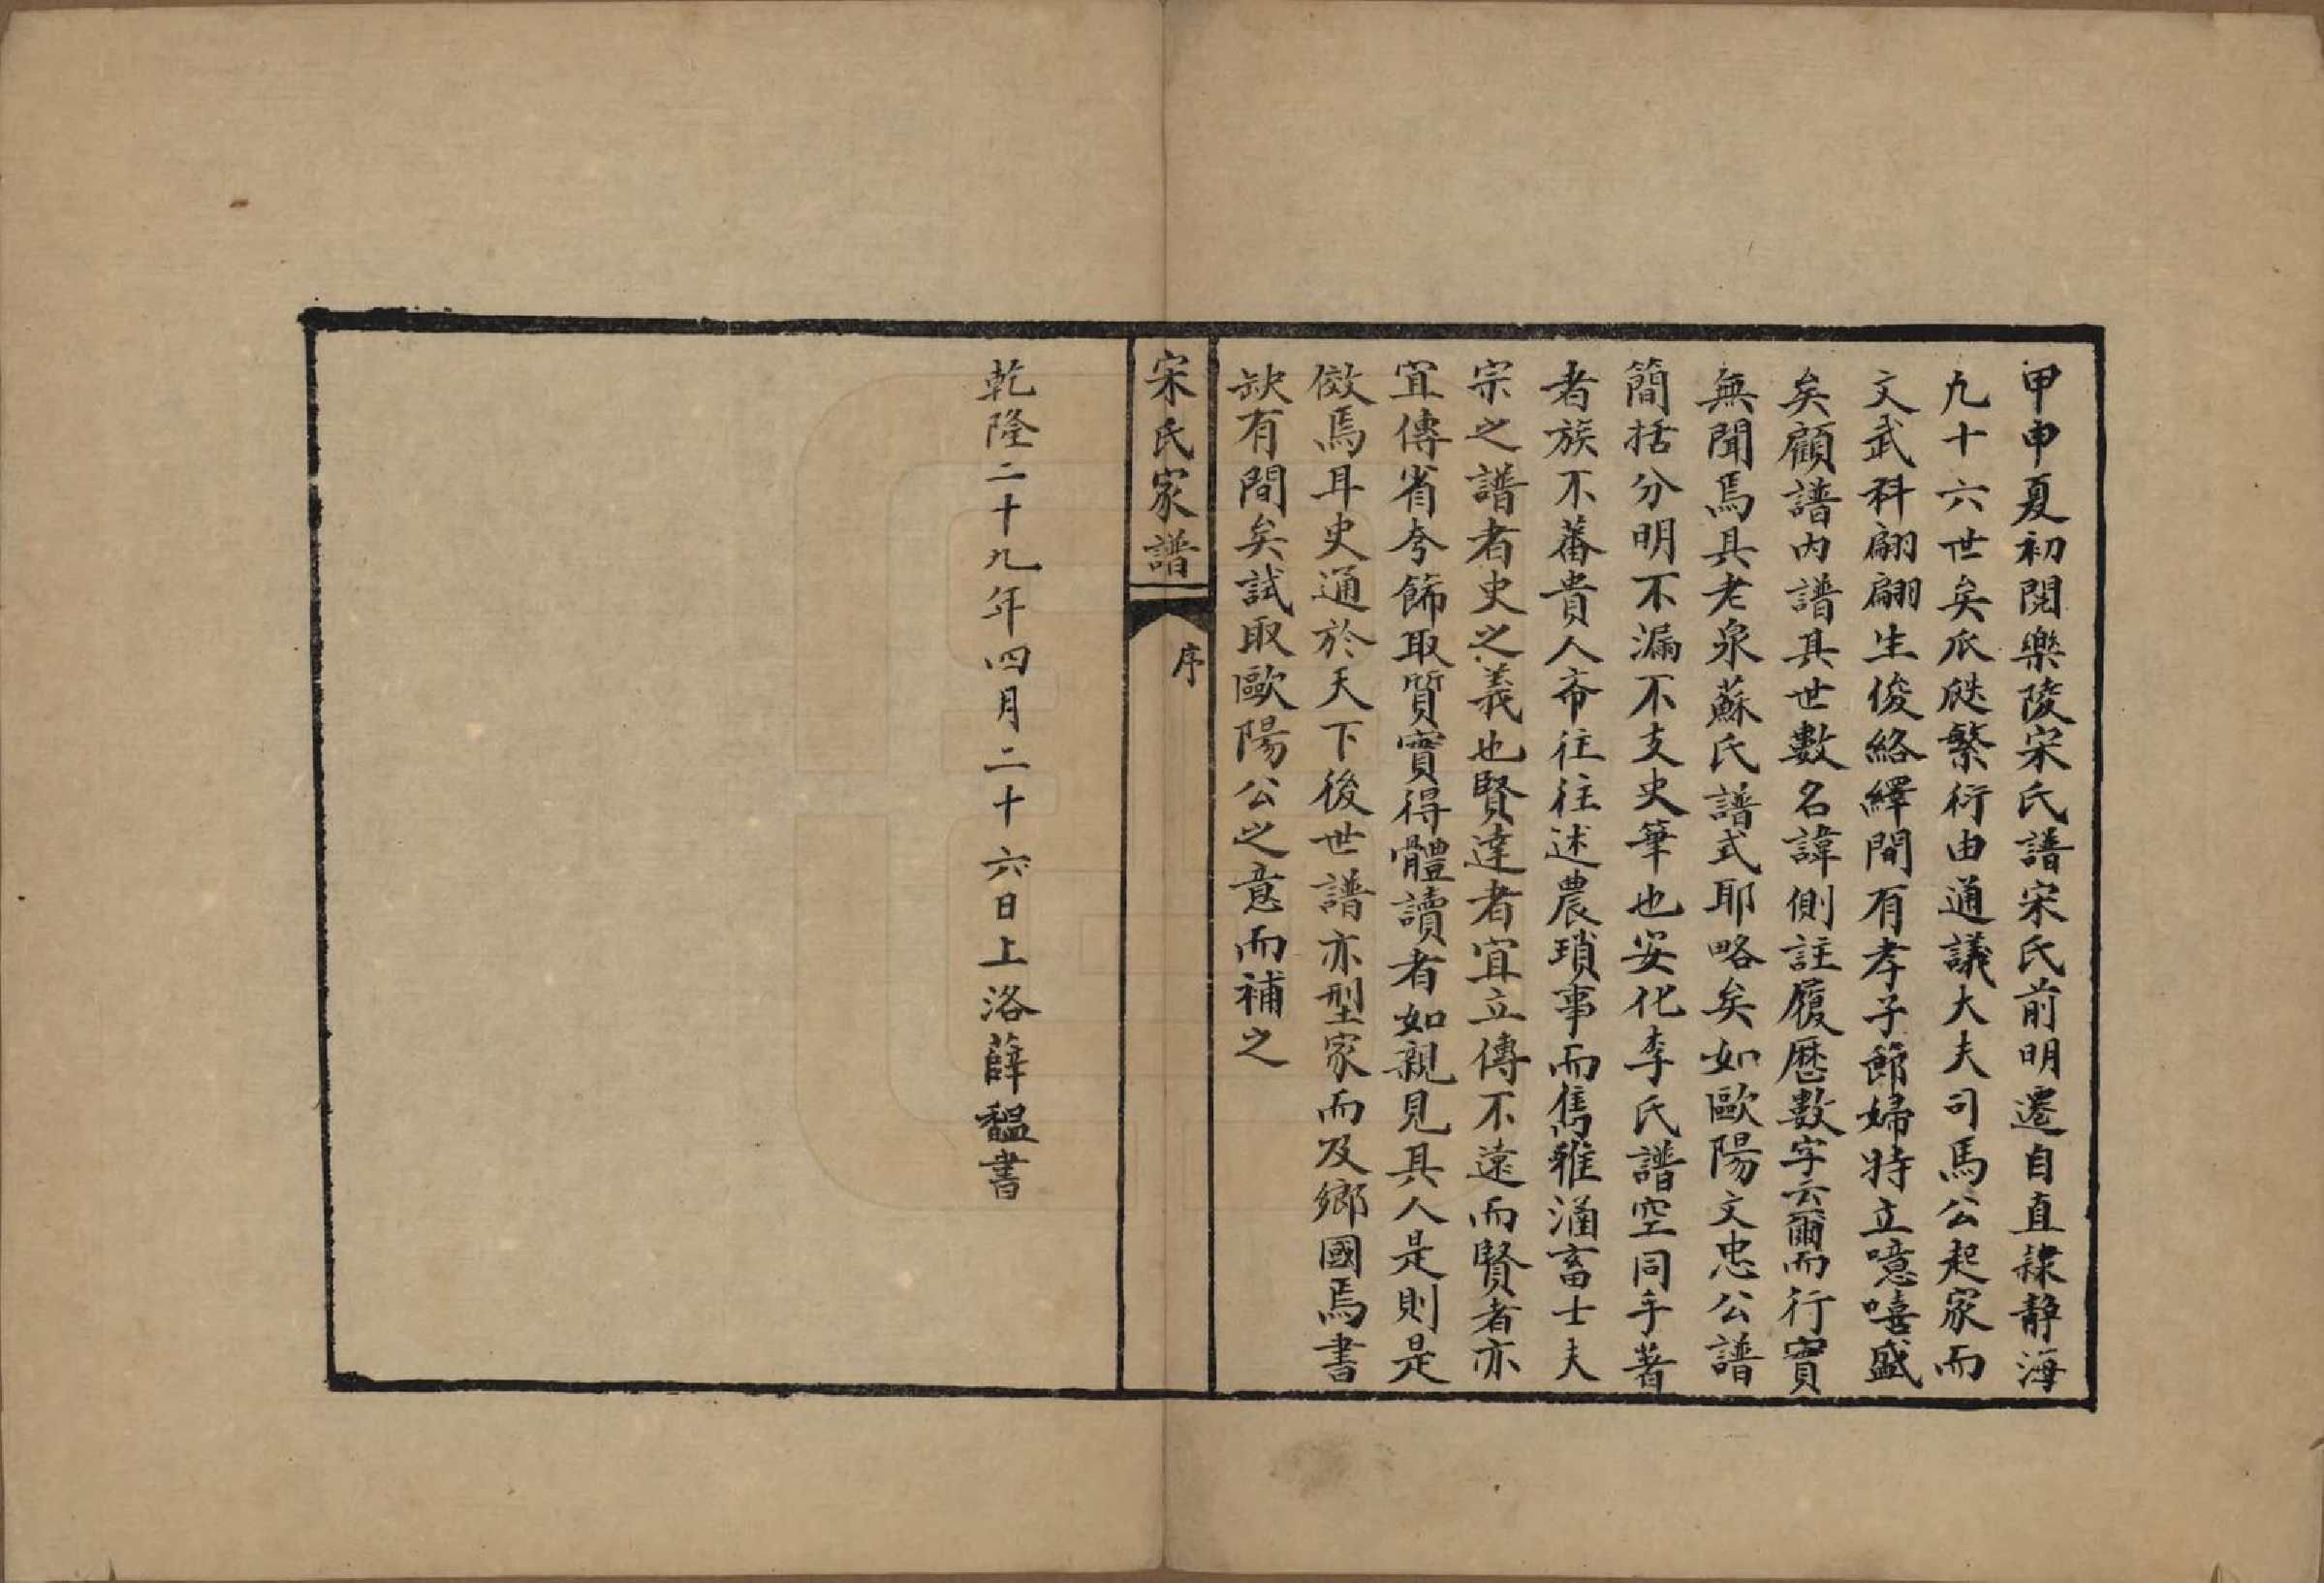 甲申夏初閱樂陵宋氏譜宋氏前明遷自直隸靜海
九十六世矣瓜瓞繁衍由通議大夫司馬公起家而
文武科翩翩生俊絡繹間有孝子節婦特立噫嘻盛
矣顧譜內譜其世數名諱側註履歷數字云爾而行實
無聞焉具老泉蘇氏譜式耶略矣如歐陽文忠公譜
簡括分明不漏不支史筆也安化李氏譜空同手著
者族不蕃貴人亦往往述農瑣事而雋雅涵畜士夫
宗之譜者史之義也賢達者宜立傳不遠而賢者亦
宜傳省夸飾取質實得體讀者如親見其人是則是
傚焉耳史通於天下後世譜亦型家而及鄉國焉書
缺有間矣試取歐陽公之意而補之
宋氏家譜
序
乾隆二十九年四月二十六日上洛薛韞書